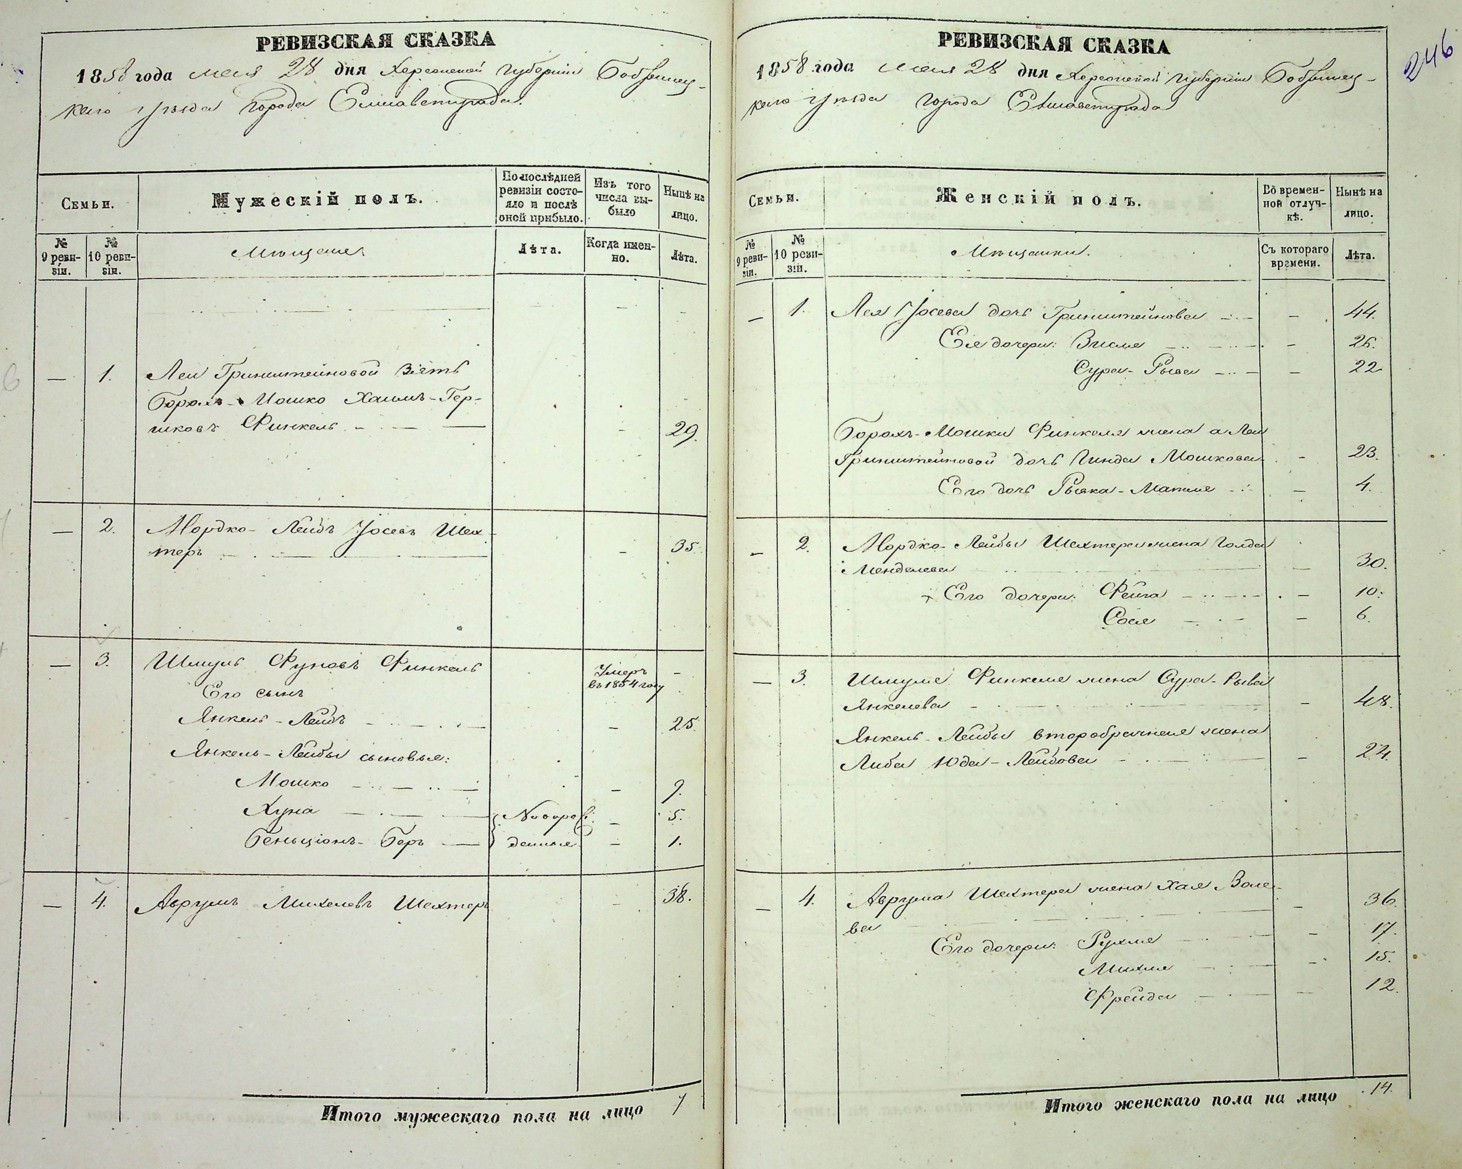 РЕВИЗСКАЯ СКАЗКА
1858 года мая 28 дня Херсонской губернии Бобринец-
каго уезда города Елисаветграда.
Семьи.
Мужескій полъ.
По послѣдней ревизіи состояло и послѣ оней прибыло.
Изъ того числа выбыло
Нынѣ на лицо.
№ 9 ревизіи.
№ 10 ревизіи.
Мѣщане.
Лѣта.
Когда именно.
Лѣта.
— 1. Леи Гринштейновой Зять
Борохъ-Мошко Хаимъ-Гер-
шковъ Финкель — 29.
— 2. Мордко-Лейбъ Іосевъ Шех-
теръ — 35.
— 3. Шмуль Фуновъ Финкель Умеръ в 1854 году —
Его сынъ
Янкель-Лейбъ — 25
Янкель-Лейбы сыновья:
Мошко — 9.
Хуна — Новоро- — 5.
Беньціонъ-Беръ — жденные — 1.
— 4. Аврумъ Михелевъ Шехтеръ — 38.
Итого мужескаго пола на лицо 7
246
РЕВИЗСКАЯ СКАЗКА
1858 года мая 28 дня Херсонской губерніи Бобринец-
каго уезда города Елисаветграда
Семьи.
Женскій полъ.
Во временной отлучкѣ.
Нынѣ на лицо.
№ 9 ревизіи.
№ 10 ревизіи.
Мѣщанки.
Съ котораго времени.
Лѣта.
— 1. Лея Іосева дочь Гринштейнова — 44.
Ея дочери: Висля — 26.
Сура-Рыва — 22
Борохъ-Мошки Финкеля жена а Леи
Гринштейновой дочь Гинда Мошкова — 23.
Его дочь Рывка-Матля — 4.
— 2. Мордко-Лейбы Шехтера жена Голда
Менделева — 30.
Его дочери: Фейга — 10.
Сося — 6.
— 3. Шмуля Финкеля жена Сура-Рыва
Янкелева — 48.
Янкель-Лейбы второбрачная жена
Либа Юда-Лейбова — 24.
— 4. Аврума Шехтера жена Хая Воле-
ва — 36.
Его дочери: Рухля — 17.
Михля — 15.
Фрейда — 12.
Итого женскаго пола на лицо 14.